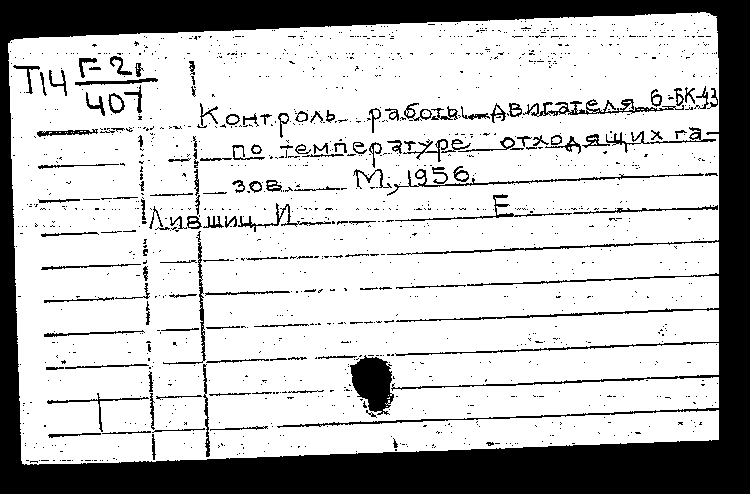 Т14 Г-21
407
Контроль работы двигателя 6-БК-43
по температуре отходящих га-
зов М., 1956.
Лившиц И Е